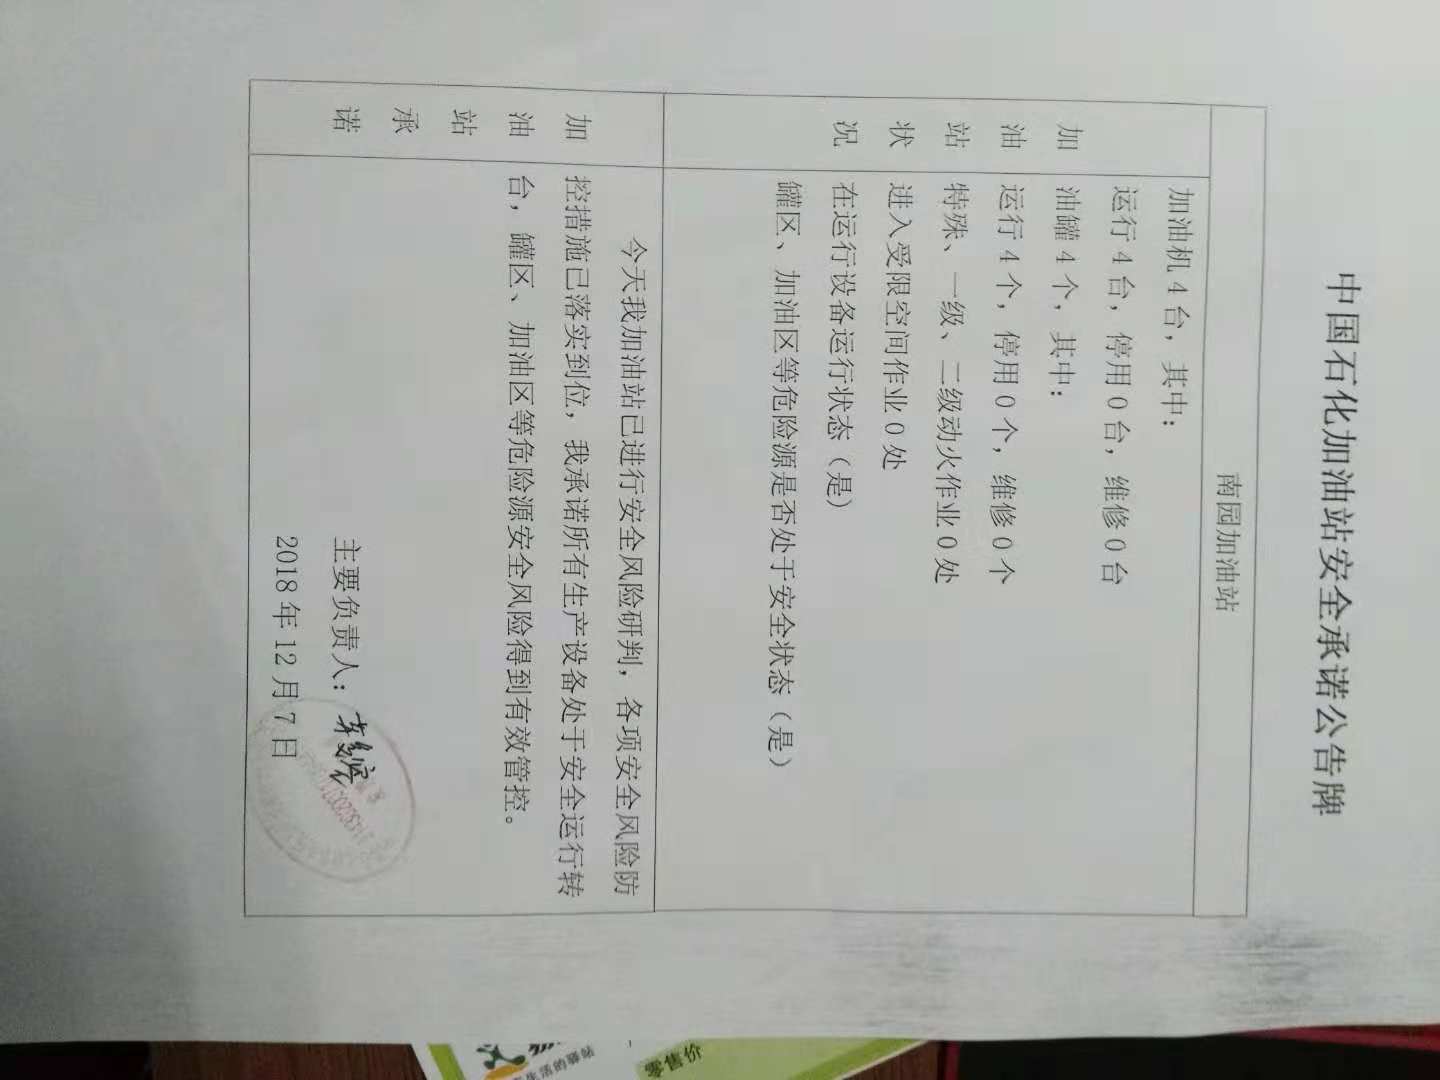 中国石化加油站安全承诺公告牌
南园加油站
加油站状况
加油机4台，其中：
运行4台，停用0台，维修0台
油罐4个，其中：
运行4个，停用0个，维修0个
特殊、一级、二级动火作业0处
进入受限空间作业0处
在运行设备运行状态（是）
罐区、加油区等危险源是否处于安全状态（是）
加油站承诺
今天我加油站已进行安全风险研判，各项安全风险防
控措施已落实到位，我承诺所有生产设备处于安全运行转
台，罐区、加油区等危险源安全风险得到有效管控。
主要负责人：
2018年12月7日
生活的驿站
零售价